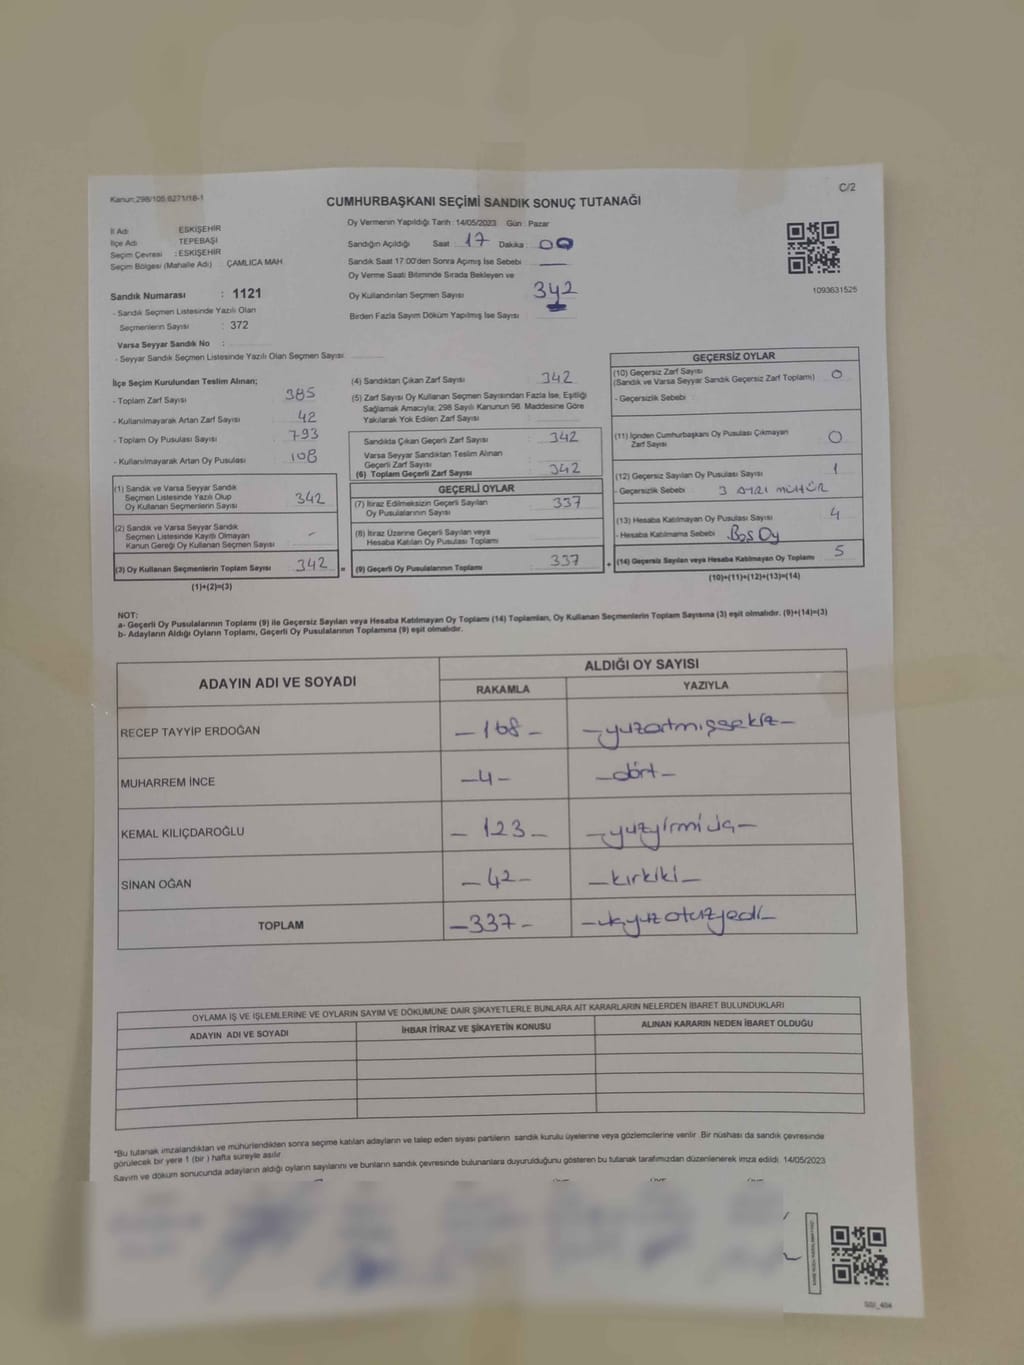 Kanun:298/105.6271/18-1
C/2
CUMHURBAŞKANI SEÇİMİ SANDIK SONUÇ TUTANAĞI
İl Adı : ESKİŞEHİR
İlçe Adı TEPEBAŞI
Seçim Çevresi : ESKİŞEHİR
Seçim Bölgesi (Mahalle Adı) ÇAMLICA MAH
Sandık Numarası : 1121
- Sandık Seçmen Listesinde Yazılı Olan
Seçmenlerin Sayısı : 372
Varsa Seyyar Sandık No :
- Seyyar Sandık Seçmen Listesinde Yazılı Olan Seçmen Sayısı:
Oy Vermenin Yapıldığı Tarih : 14/05/2023 Gün : Pazar
Sandığın Açıldığı Saat : 17 Dakika : 00
Sandık Saat 17:00'den Sonra Açımış İse Sebebi
Oy Verme Saati Bitiminde Sırada Bekleyen ve
Oy Kullandırılan Seçmen Sayısı 342
Birden Fazla Sayım Döküm Yapılmış İse Sayısı
1093631525
İlçe Seçim Kurulundan Teslim Alınan;
- Toplam Zarf Sayısı 385
- Kullanılmayarak Artan Zarf Sayısı 42
- Toplam Oy Pusulası Sayısı 793
- Kullanılmayarak Artan Oy Pusulası 108
(1) Sandık ve Varsa Seyyar Sandık
Seçmen Listesinde Yazılı Olup
Oy Kullanan Seçmenlerin Sayısı 342
(2) Sandık ve Varsa Seyyar Sandık
Seçmen Listesinde Kayıtlı Olmayan
Kanun Gereği Oy Kullanan Seçmen Sayısı -
(3) Oy Kullanan Seçmenlerin Toplam Sayısı 342
(1)+(2)=(3)
(4) Sandıktan Çıkan Zarf Sayısı 342
(5) Zarf Sayısı Oy Kullanan Seçmen Sayısından Fazla İse, Eşitliği
Sağlamak Amacıyla; 298 Sayılı Kanunun 98. Maddesine Göre
Yakılarak Yok Edilen Zarf Sayısı
Sandıkta Çıkan Geçerli Zarf Sayısı 342
Varsa Seyyar Sandıktan Teslim Alınan
Geçerli Zarf Sayısı
(6) Toplam Geçerli Zarf Sayısı 342
GEÇERLİ OYLAR
(7) İtiraz Edilmeksizin Geçerli Sayılan
Oy Pusulalarının Sayısı 337
(8) İtiraz Üzerine Geçerli Sayılan veya
Hesaba Katılan Oy Pusulası Toplamı
= (9) Geçerli Oy Pusulalarının Toplamı 337 +
GEÇERSİZ OYLAR
(10) Geçersiz Zarf Sayısı
(Sandık ve Varsa Seyyar Sandık Geçersiz Zarf Toplamı) 0
- Geçersizlik Sebebi :
(11) İçinden Cumhurbaşkanı Oy Pusulası Çıkmayan
Zarf Sayısı 0
(12) Geçersiz Sayılan Oy Pusulası Sayısı 1
- Geçersizlik Sebebi 3 AYRI MÜHÜR
(13) Hesaba Katılmayan Oy Pusulası Sayısı 4
- Hesaba Katılmama Sebebi Boş Oy
(14) Geçersiz Sayılan veya Hesaba Katılmayan Oy Toplamı 5
(10)+(11)+(12)+(13)=(14)
NOT:
a- Geçerli Oy Pusulalarının Toplamı (9) ile Geçersiz Sayılan veya Hesaba Katılmayan Oy Toplamı (14) Toplamları, Oy Kullanan Seçmenlerin Toplam Sayısına (3) eşit olmalıdır. (9)+(14)=(3)
b- Adayların Aldığı Oyların Toplamı, Geçerli Oy Pusulalarının Toplamına (9) eşit olmalıdır.
ADAYIN ADI VE SOYADI ALDIĞI OY SAYISI
RAKAMLA YAZIYLA
RECEP TAYYİP ERDOĞAN -168- -yuzartmışsekiz-
MUHARREM İNCE -4- -dört-
KEMAL KILIÇDAROĞLU -123- -yuzyirmiüç-
SİNAN OĞAN -42- -kırkiki-
TOPLAM -337- -üçyuzotuzyedi-
OYLAMA İŞ VE İŞLEMLERİNE VE OYLARIN SAYIM VE DÖKÜMÜNE DAİR ŞİKAYETLERLE BUNLARA AİT KARARLARIN NELERDEN İBARET BULUNDUKLARI
ADAYIN ADI VE SOYADI İHBAR İTİRAZ VE ŞİKAYETİN KONUSU ALINAN KARARIN NEDEN İBARET OLDUĞU
*Bu tutanak imzalandıktan ve mühürlendikten sonra seçime katılan adayların ve talep eden siyasi partilerin sandık kurulu üyelerine veya gözlemcilerine verilir. Bir nüshası da sandık çevresinde
görülecek bir yere 1 (bir) hafta süreyle asılır.
Sayım ve döküm sonucunda adayların aldığı oyların sayılarını ve bunların sandık çevresinde bulunanlara duyurulduğunu gösteren bu tutanak tarafımızdan düzenlenerek imza edildi. 14/05/2023